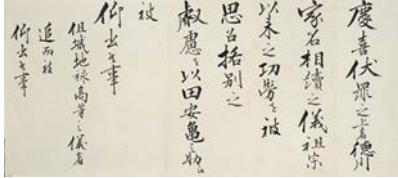 慶喜伏罪之上者德川
家名相續之儀祖宗
以来之功勞を被
思召格別之
叡慮を以田安亀之助江
被
仰出候事
但城地禄高等之儀者
追而被
仰出候事